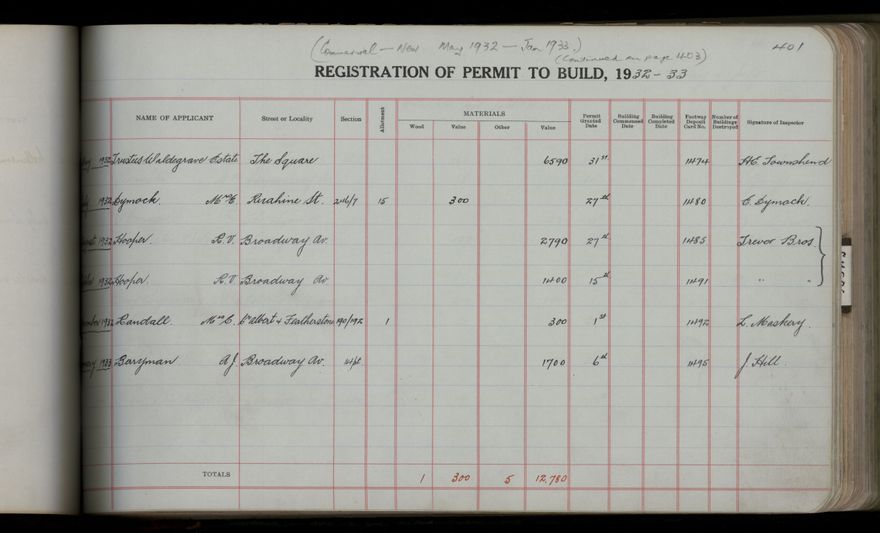 (Commercial - New May 1932 - Jan 1933.) 401
(Continued on page 403)
REGISTRATION OF PERMIT TO BUILD, 1932-33
NAME OF APPLICANT Street or Locality Section Allotment MATERIALS Wood Value Other Value Permit Granted Date Building Commenced Date Building Completed Date Footway Deposit Card No. Number of Buildings Destroyed Signature of Inspector
1932 Trustees Waldegrave Estate The Square 6590 31st 11474 Townshend
1932 Dymock. Mrs E. Ruahine St. 246/7 15 300 27th 11480 E. Dymock.
1932 Hooper. R.V. Broadway Av. 2790 27th 11485 Trevor Bros.
1932 Hooper. R.V. Broadway Av. 1400 15th 11491 " "
1932 Randall. Mrs C. Albert & Featherston 190/192 1 300 1st 11492 L. Maskery.
1933 Berryman A.J. Broadway Av. 1700 6th 11495 J. Hill.
TOTALS 1 300 5 12,780